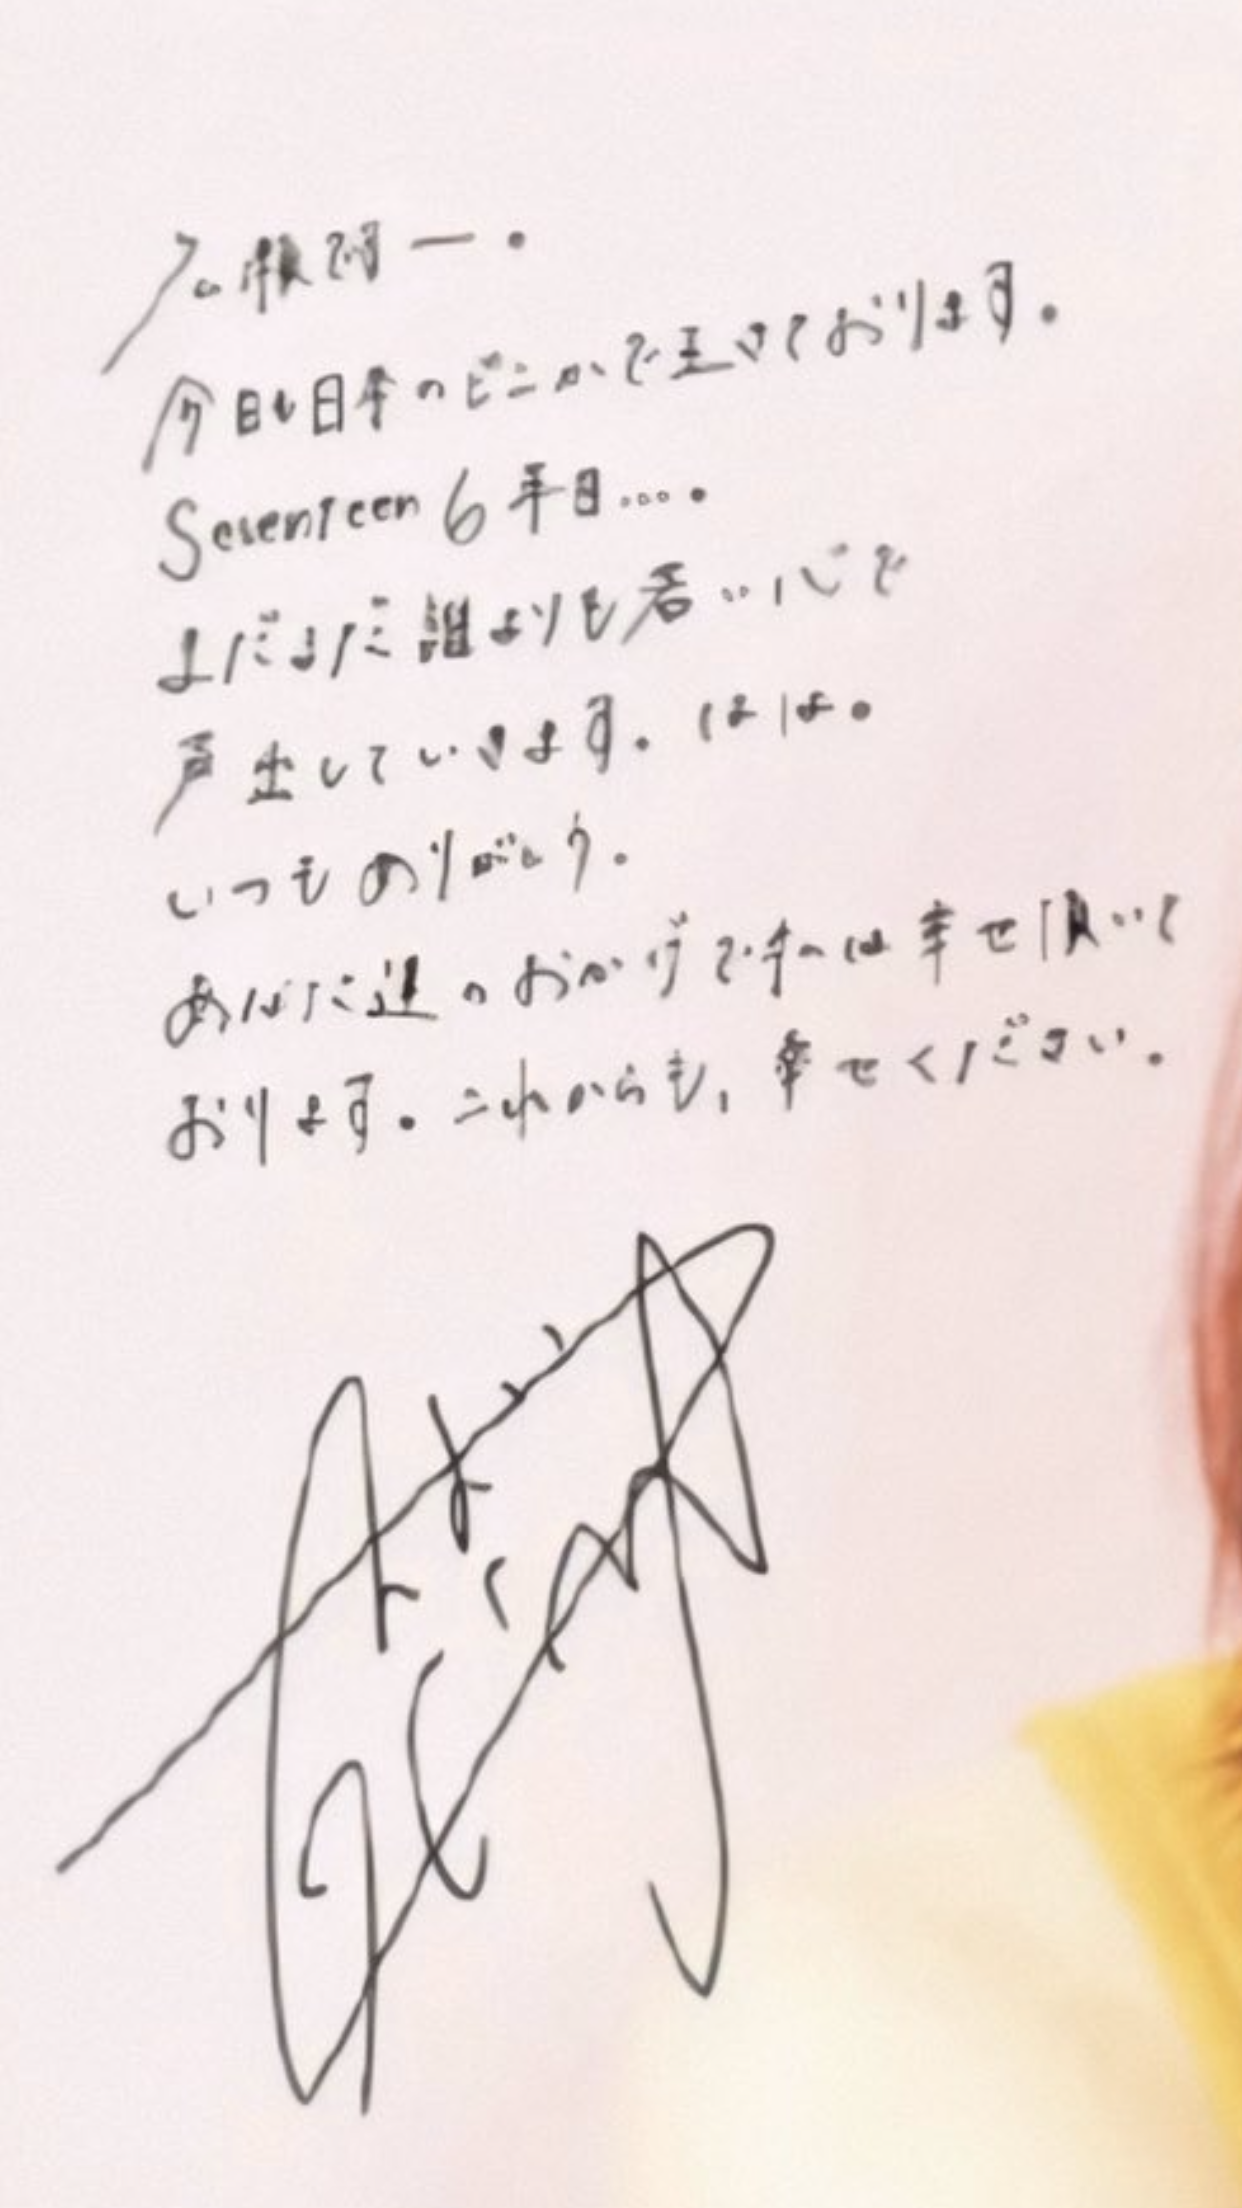 広瀬アリー。
今日も日本のどこかで生きております。
Seventeen 6年目....。
まだまだ誰よりも若い心で
声出していきます。はは。
いつもありがとう。
あなた達のおかげですずは幸せ頂いて
おります。これからも、幸せください。